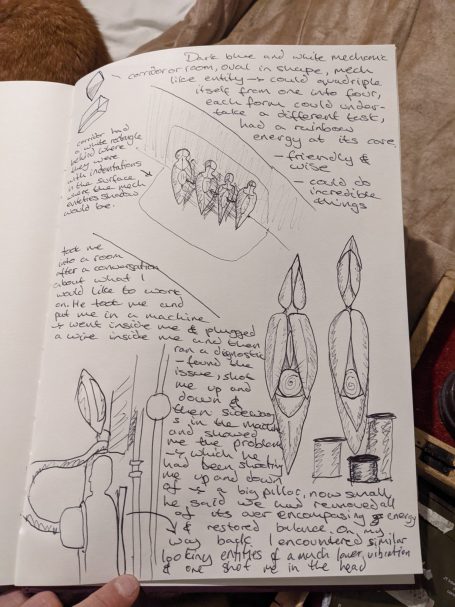 Dark blue and white mechanic
corridor or room, oval in shape, mech
like entity → could quadruple
itself from one into four,
each form could under-
take a different test,
had a rainbow
energy at its core.
- friendly &
wise
- could do
incredible
things
corridor had
a white rectangle
behind where
they were
with indentations
in the surface
where the mech
entities shadow
would be.
took me
into a room
after a conversation
about what I
would like to work
on. He took me and
put me in a machine
↳ went inside me & plugged
a wire inside me and then
ran a diagnostic
- found the
issue, shot
me up and
down &
then sideway
s in the machine
and showed
me the problem
↳ which he
had been shooting
me up and down
of ↳ a big pillar, now small
he said we had removed all
of its over encompassing energy
& restored balance. On my
way back I encountered similar
looking entities of a much lower vibration
& one shot me in the head